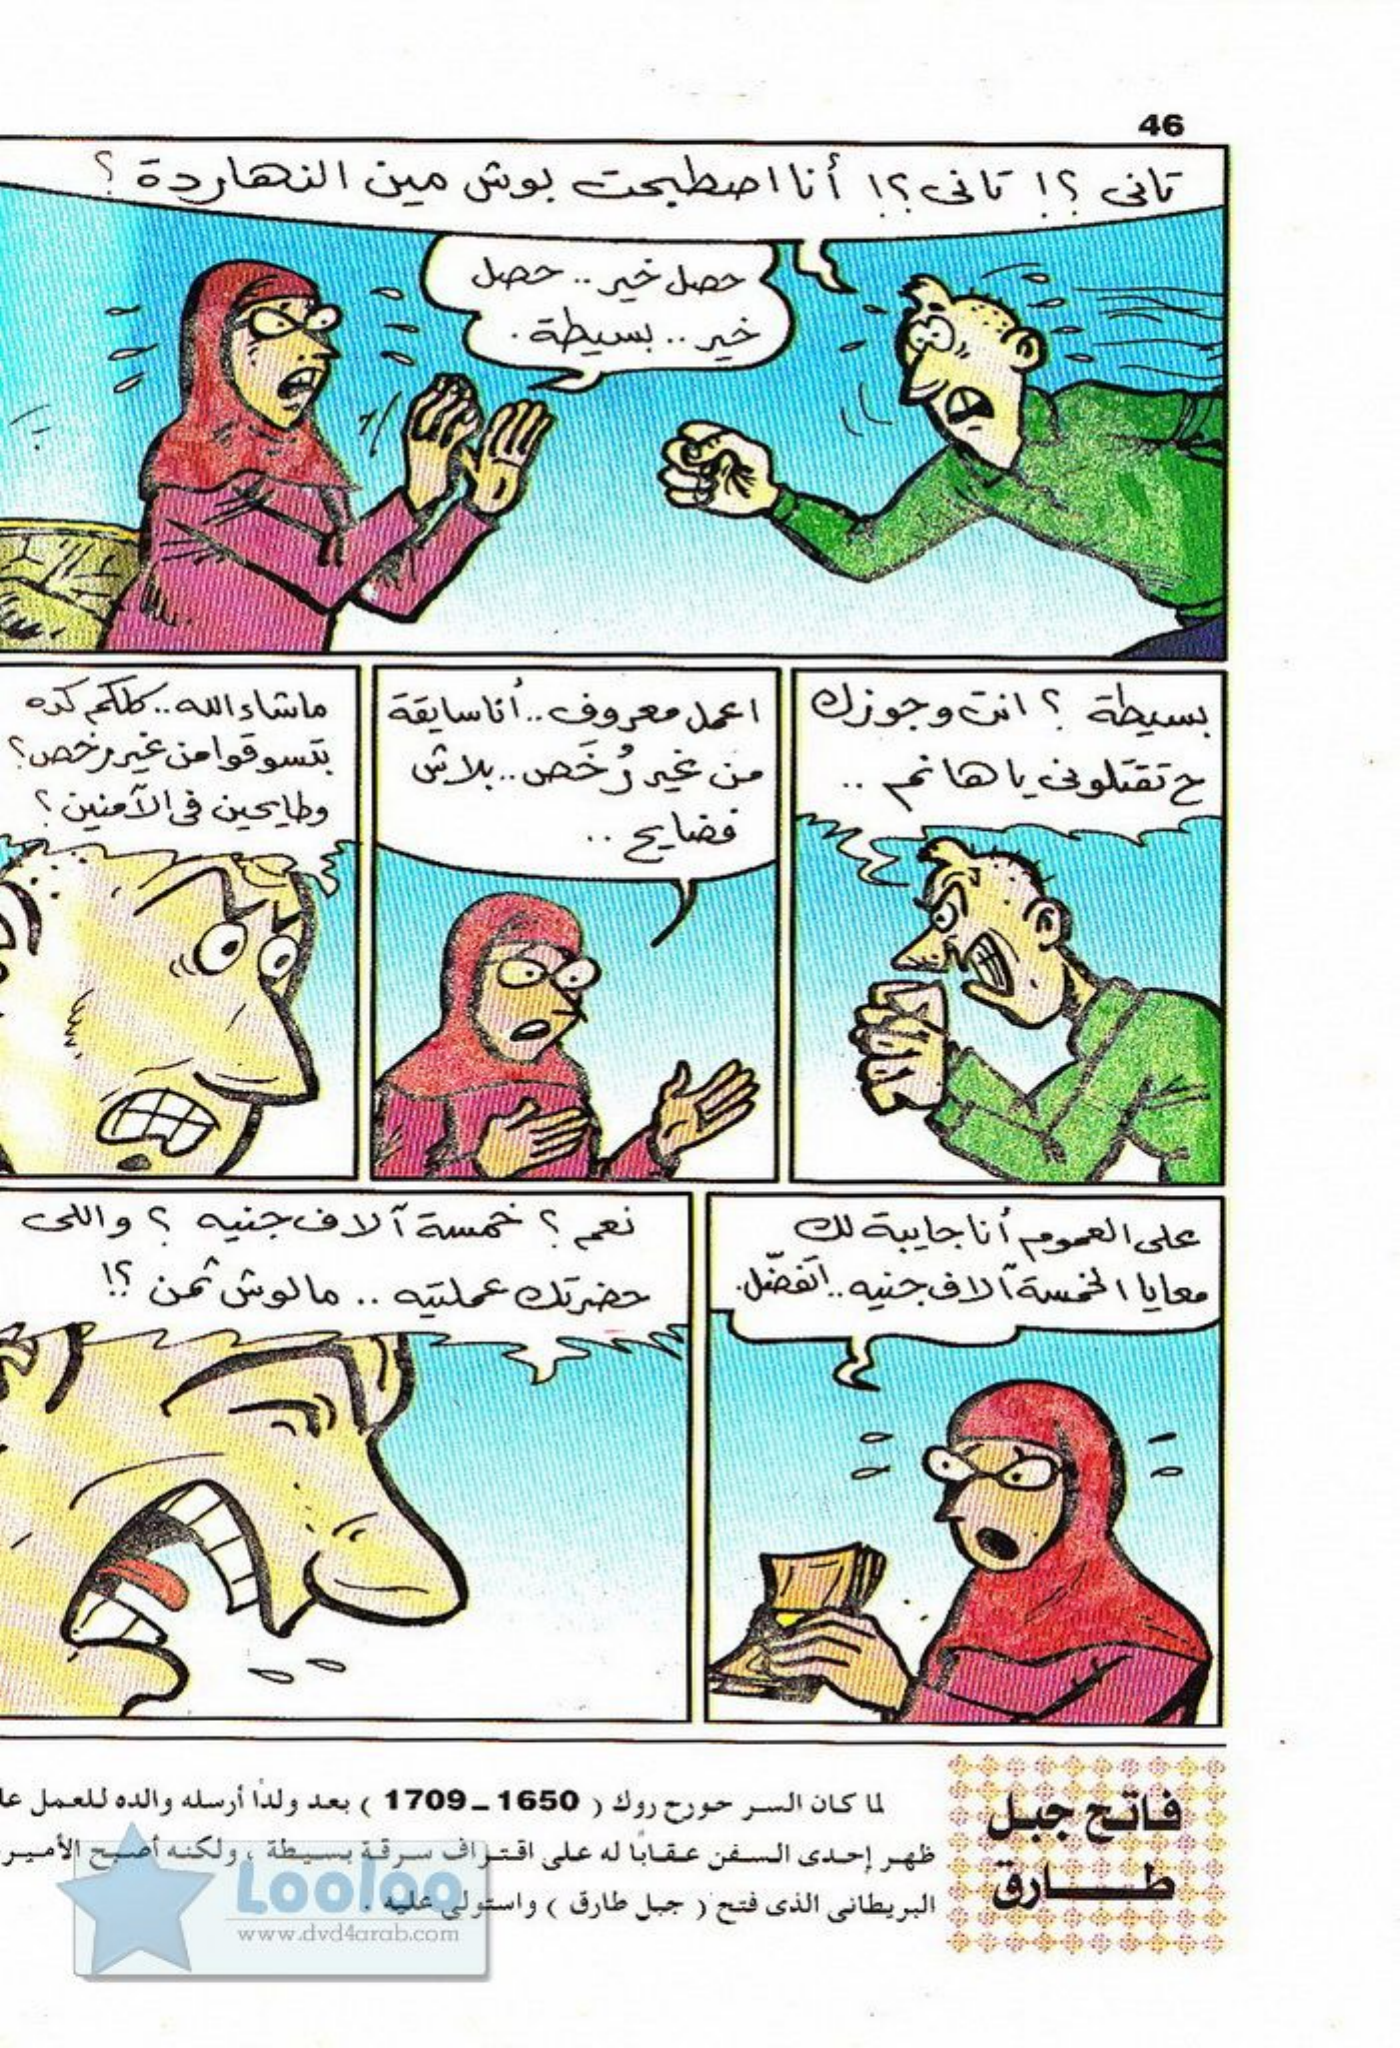 46
تانى ؟! تانى ؟! أنا اصطبحت بوش مين النهاردة ؟
حصل خير .. حصل
خير .. بسيطة .
بسيطة ؟ انت وجوزك
ح تقتلونى يا هانم ..
اعمل معروف .. أنا سايقة
من غير رُخَص .. بلاش
فضايح ..
ماشاء الله .. كلكم كده
بتسوقوا من غير رخص ؟
وطايحين فى الآمنين ؟
على العموم أنا جايبة لك
معايا الخمسة آلاف جنيه .. اتفضّل.
نعم ؟ خمسة آلاف جنيه ؟ واللى
حضرتك عملتيه .. مالوش ثمن ؟!
فاتح جبل
طارق
لما كان السر جورج روك ( 1650 - 1709 ) بعد ولدًا أرسله والده للعمل
ظهر إحدى السفن عقابًا له على اقتراف سرقة بسيطة ، ولكنه أصبح الأمير
البريطانى الذى فتح ( جبل طارق ) واستولى عليه .
Looloo
www.dvd4arab.com